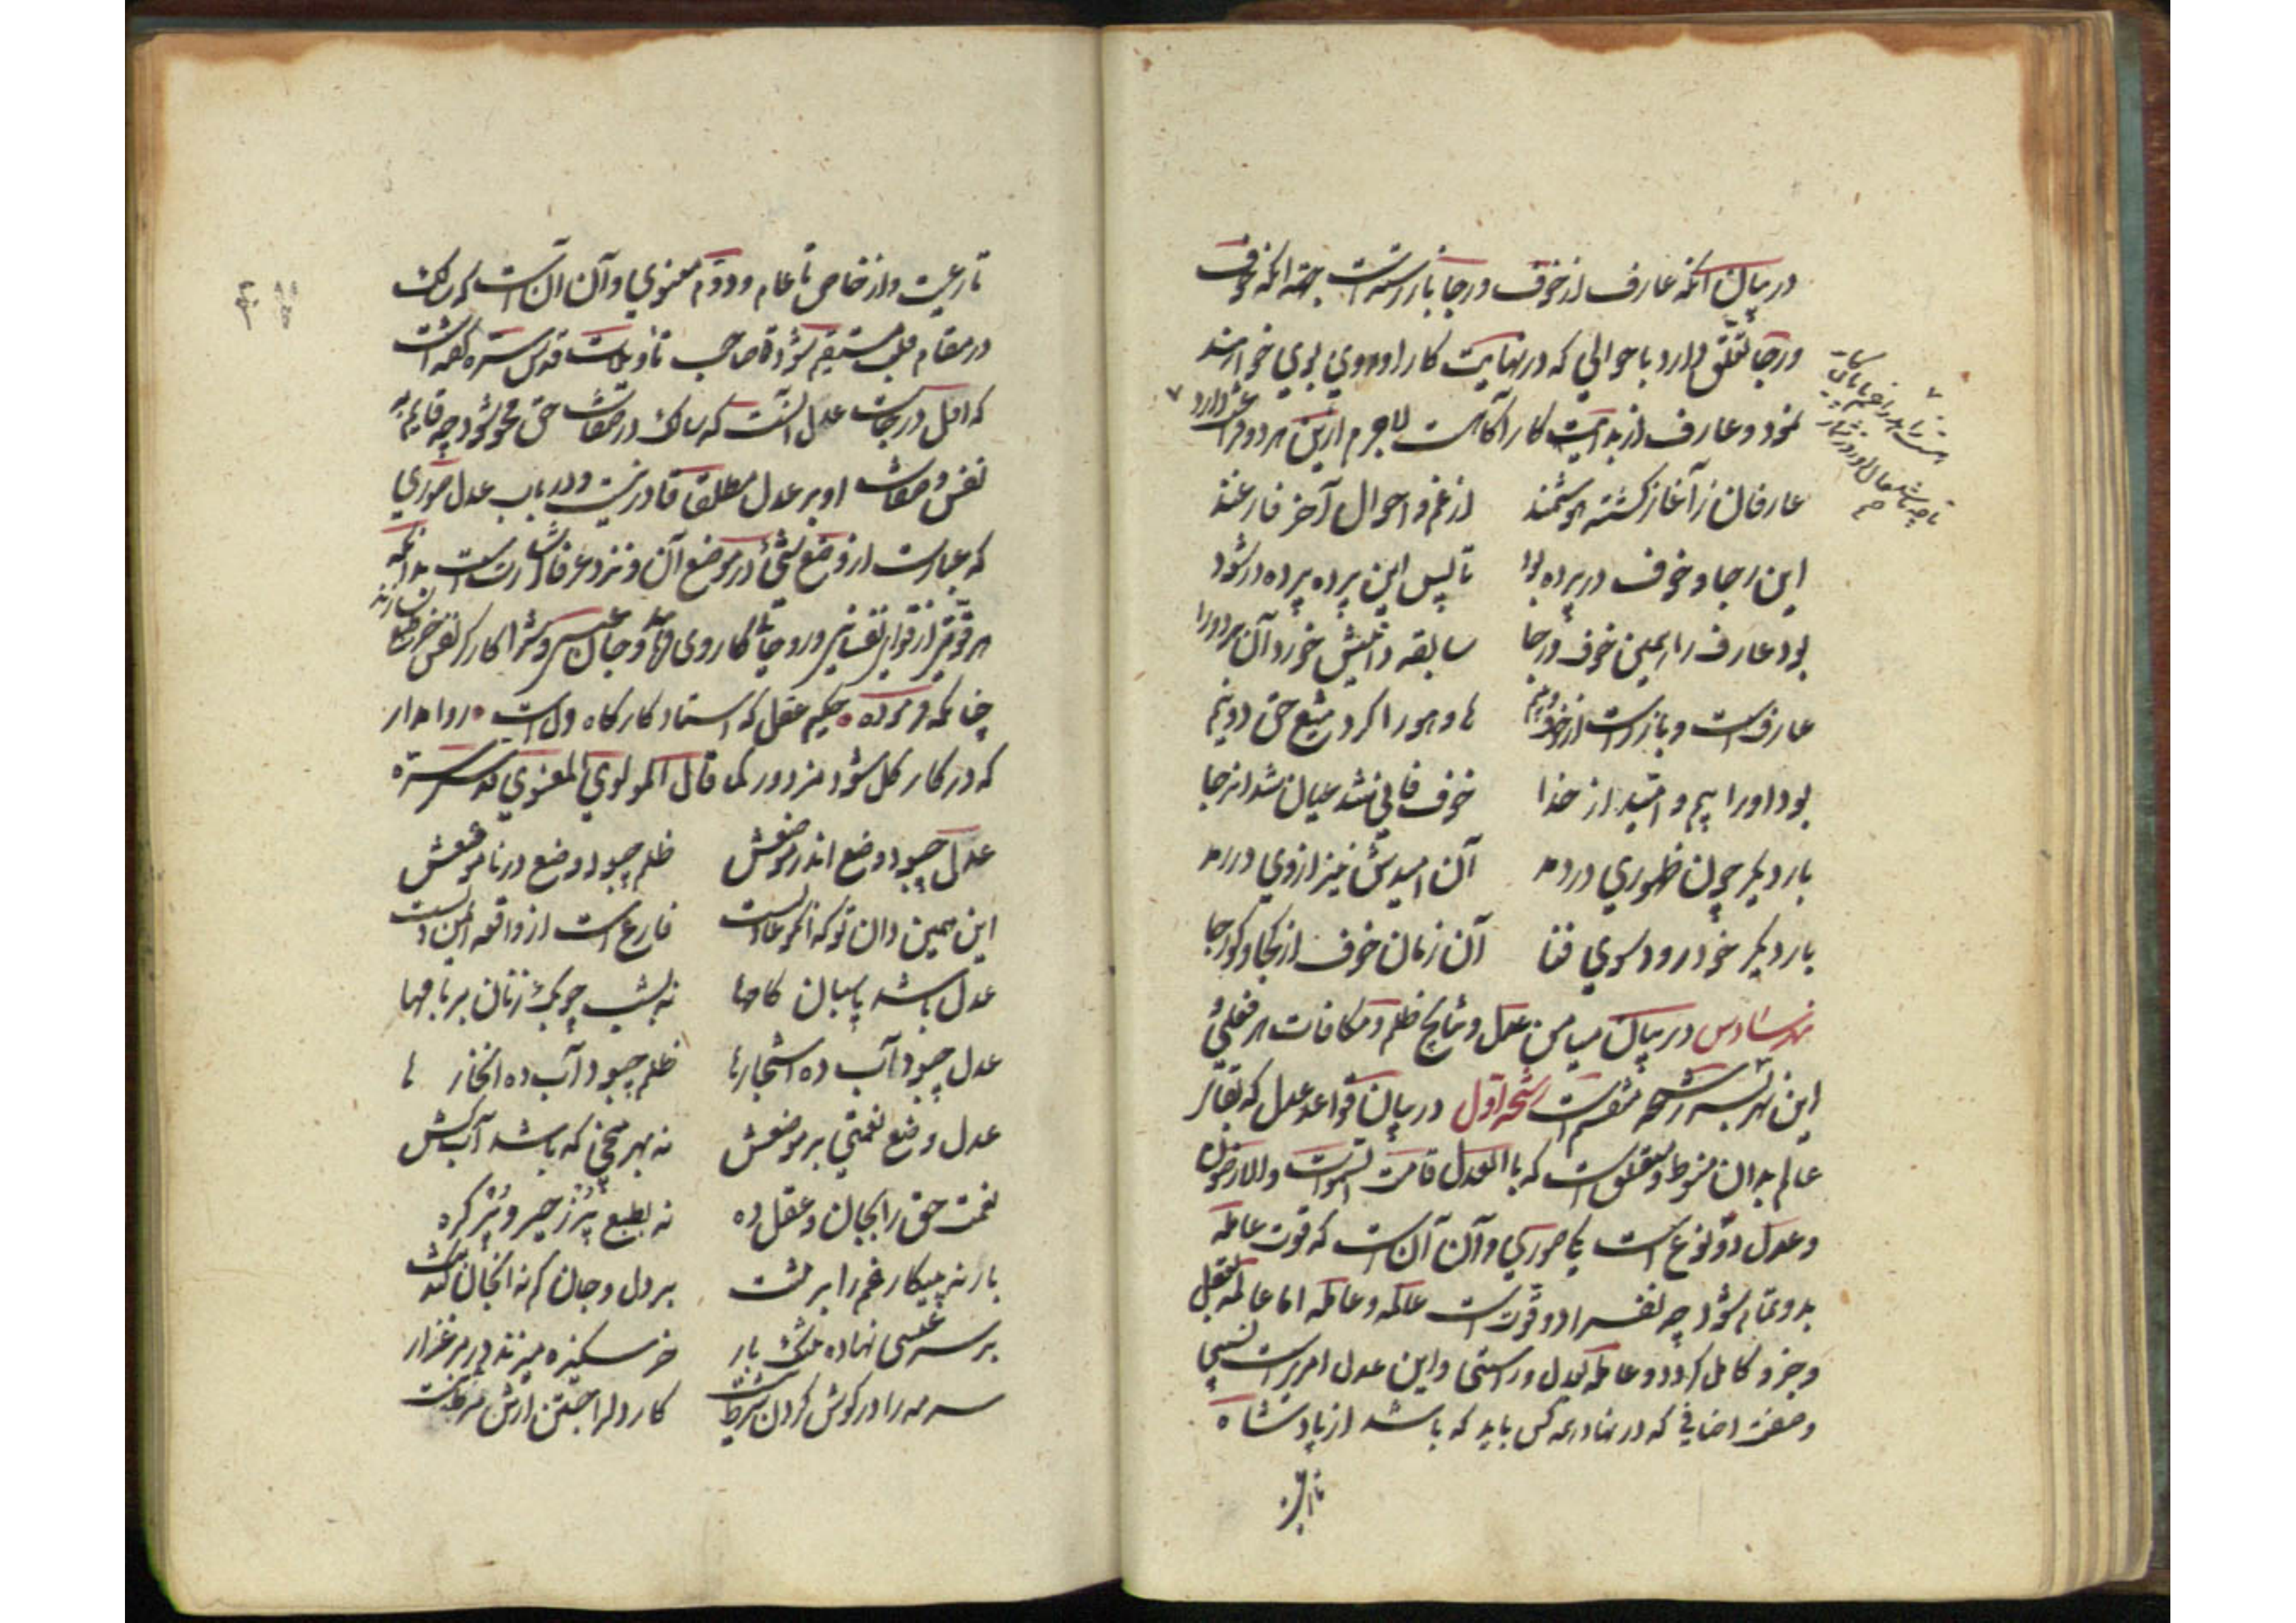 در بیان آنکه عارف از خوف و رجا باز رسته است بجهة آنکه خوف
و رجا تعلق دارد باحوالی که در نهایت کار او روی خواهد
نمود و عارف از بدایت کار آگاهست لاجرم ازین هر دو فراغت دارد
عارفان ز آغاز گشته هوشمند از غم و احوال آخر فارغند
این رجا و خوف در پرده بود تا پس این پرده پرورده شود
بود عارف را همین خوف و رجا سابقه دانیش خورد آن هر دو را
عارفست و باز رست از خوف و بیم های و هو را کرد تیغ حق دو نیم
بود او را بیم و امید از خدا خوف فانی شد عیان شد آن رجا
بار دیگر چون ظهوری در دمد آن امیدش نیز از وی در رمد
بار دیگر خود رود سوی فنا آن زمان خوف از کجا و کو رجا
نهر سادس در بیان میامن عدل و نتایج ظلم و مکافات هر فعلی
این نهر بسه رشحه منقسم است رشحه اول در بیان قواعد عدل که بقای
عالم بدان منوط و متعلق است که بالعدل قامت السموات والارضون
و عدل دو نوع است یکی صوری و آن آن است که قوت عامله
بدو تمام شود چه نفس را دو قوت است عالمه و عامله اما عالمه بعقل
و خرد کامل گردد و عامله بعدل و راستی و این عدل امریست نسبی
و صفت اضافی که در نهاد همه کس باید که باشد از پادشاه
تا رعیت
تا رعیت و از خاص تا عام و دوم معنوی و آن آن است که سالک
در مقام قلب مستقیم شود صاحب تاویلات قدس سره گفته است
که اقل درجات عدل آنست که سالک در صفات حق محو شود چه قایم به
نفس و صفات او بر عدل مطلق قادر نیست و در باب عدل صوری
که عبارت از وضع شیء در موضع آن و نزد عرفا اشارت است بدانکه
هر قوتی از قوای نفسانی و روحانی کار وی و نفس
چنانکه فرموده حکیم عقل که استاد کارگاه دل است روا مدار
که در کار گل شود مزدور کما قال المولوی المعنوی قدس سره
عدل چبود وضع اندر موضعش ظلم چبود وضع در ناموضعش
این همین دان تو که آنکو عادلست فارغ است از واقعه ایمن دلست
عدل باشد پاسبان کامها نه بشب چوبک زنان بر بامها
عدل چبود آب ده اشجار را ظلم چبود آب ده انخار را
عدل وضع نعمتی بر موضعش نه بهر بیخی که باشد آب کش
نعمت حق را بجان و عقل ده نه بطبع پر زحیر و پر گره
بار نه بیکار غم را بر تنت بر دل و جان کم نه آنجان کندنت
بر سر عیسی نهاده تنگ بار خر سکیزه میزند در مرغزار
سرمه را در گوش کردن شرط نیست کار دل را جستن ازتن شرط نیست